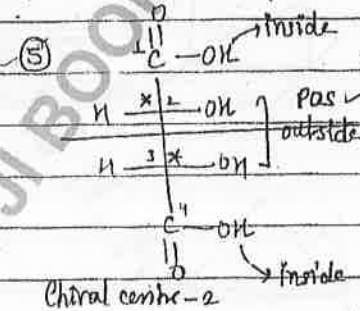 O
⑤ 1 C - OH inside
H * 2 - OH POS ✓
outside
H 3 * - OH
C 4 - OH
O inside
Chiral centre - 2
JI BOO